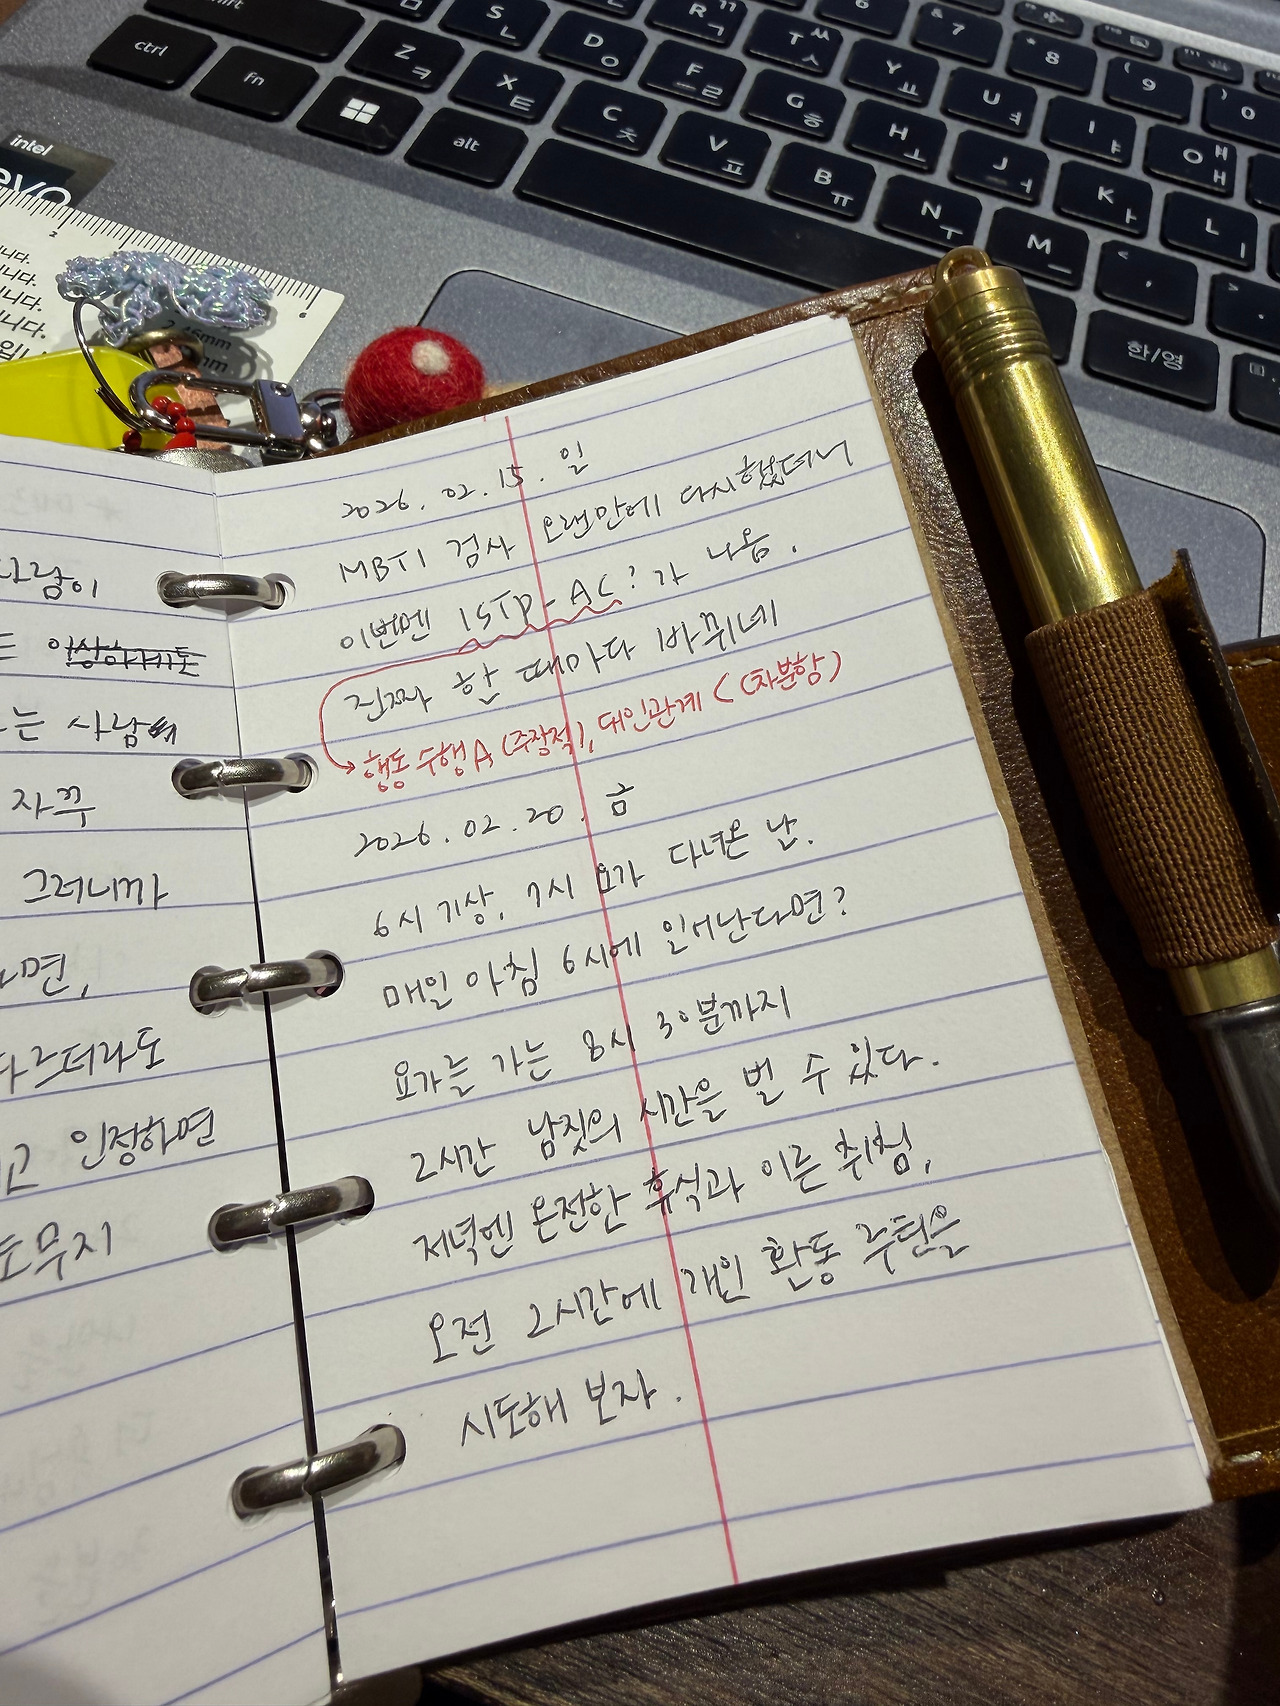 shift
S ㄴ
R ㄲ ㄱ
6
& 7
* 8
( 9
) 0
ctrl
fn
Z ㅋ
D ㅇ
F ㄹ
T ㅆ ㅅ
Y ㅛ
U ㅕ
I ㅑ
O ㅒ ㅐ
alt
X ㅌ
C ㅊ
V ㅍ
G ㅎ
H ㅗ
J ㅓ
K ㅏ
L ㅣ
B ㅠ
N ㅜ
M ㅡ
< ,
> .
한/영
intel
evo
2
니다.
니다.
니다.
니다.
입니
2.46mm
mm
사람이
는 이상하게도
는 사람
자꾸
그러니까
다면,
다르더라도
고 인정하면
도무지
2026. 02. 15. 일
MBTI 검사 오랜만에 다시했었더니
이번엔 ISTP-AC? 가 나옴.
진짜 할 때마다 바뀌네
행동수행A (주장적), 대인관계 C (차분함)
2026. 02. 20. 금
6시 기상, 7시 요가 다녀온 날.
매일 아침 6시에 일어난다면?
요가를 가는 8시 30분까지
2시간 남짓의 시간을 벌 수 있다.
저녁엔 온전한 휴식과 이른 취침,
오전 2시간에 개인 활동 루틴을
시도해 보자.